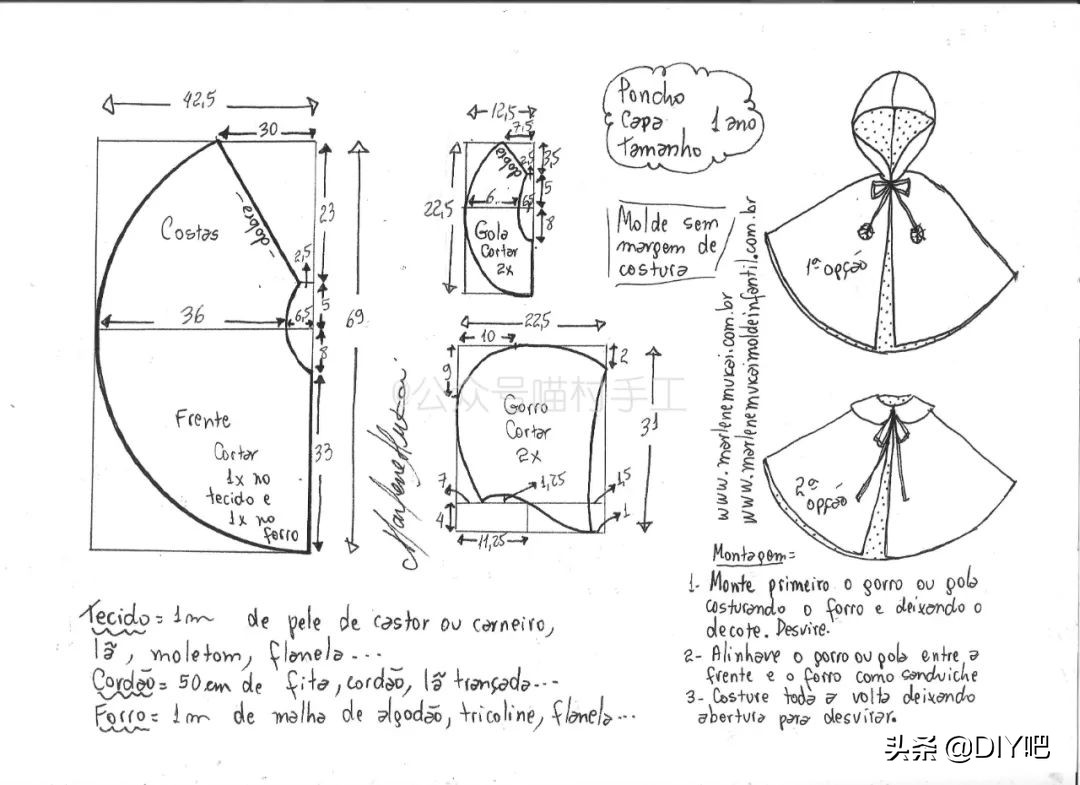 42,5
30
dobra
23
Costas
2,5
5
36
6,5
69
8
Frente
Cortar
1x no
tecido e
1x no
forro
33
12,5
7,5
dobra
2,5
3,5
5
6
6,5
22,5
8
Gola
Cortar
2x
Poncho
Capa 1 ano
tamanho
Molde sem
margem de
costura
22,5
10
2
9
Gorro
Cortar
2x
31
7
1,25
1,5
4
1
11,25
Marlene Mukai
@公众号喵村手工
www.marlenemukai.com.br
www.marlenemukaimoldeinfantil.com.br
1ª opção
2ª
opção
Tecido = 1m de pele de castor ou carneiro,
lã, moletom, flanela...
Cordão = 50 cm de fita, cordão, lã trançada...
Forro = 1m de malha de algodão, tricoline, flanela...
Montagem =
1- Monte primeiro o gorro ou gola
costurando o forro e deixando o
decote. Desvire.
2- Alinhave o gorro ou gola entre a
frente e o forro como sanduiche
3- Costure toda a volta deixando
abertura para desvirar.
头条 @DIY吧